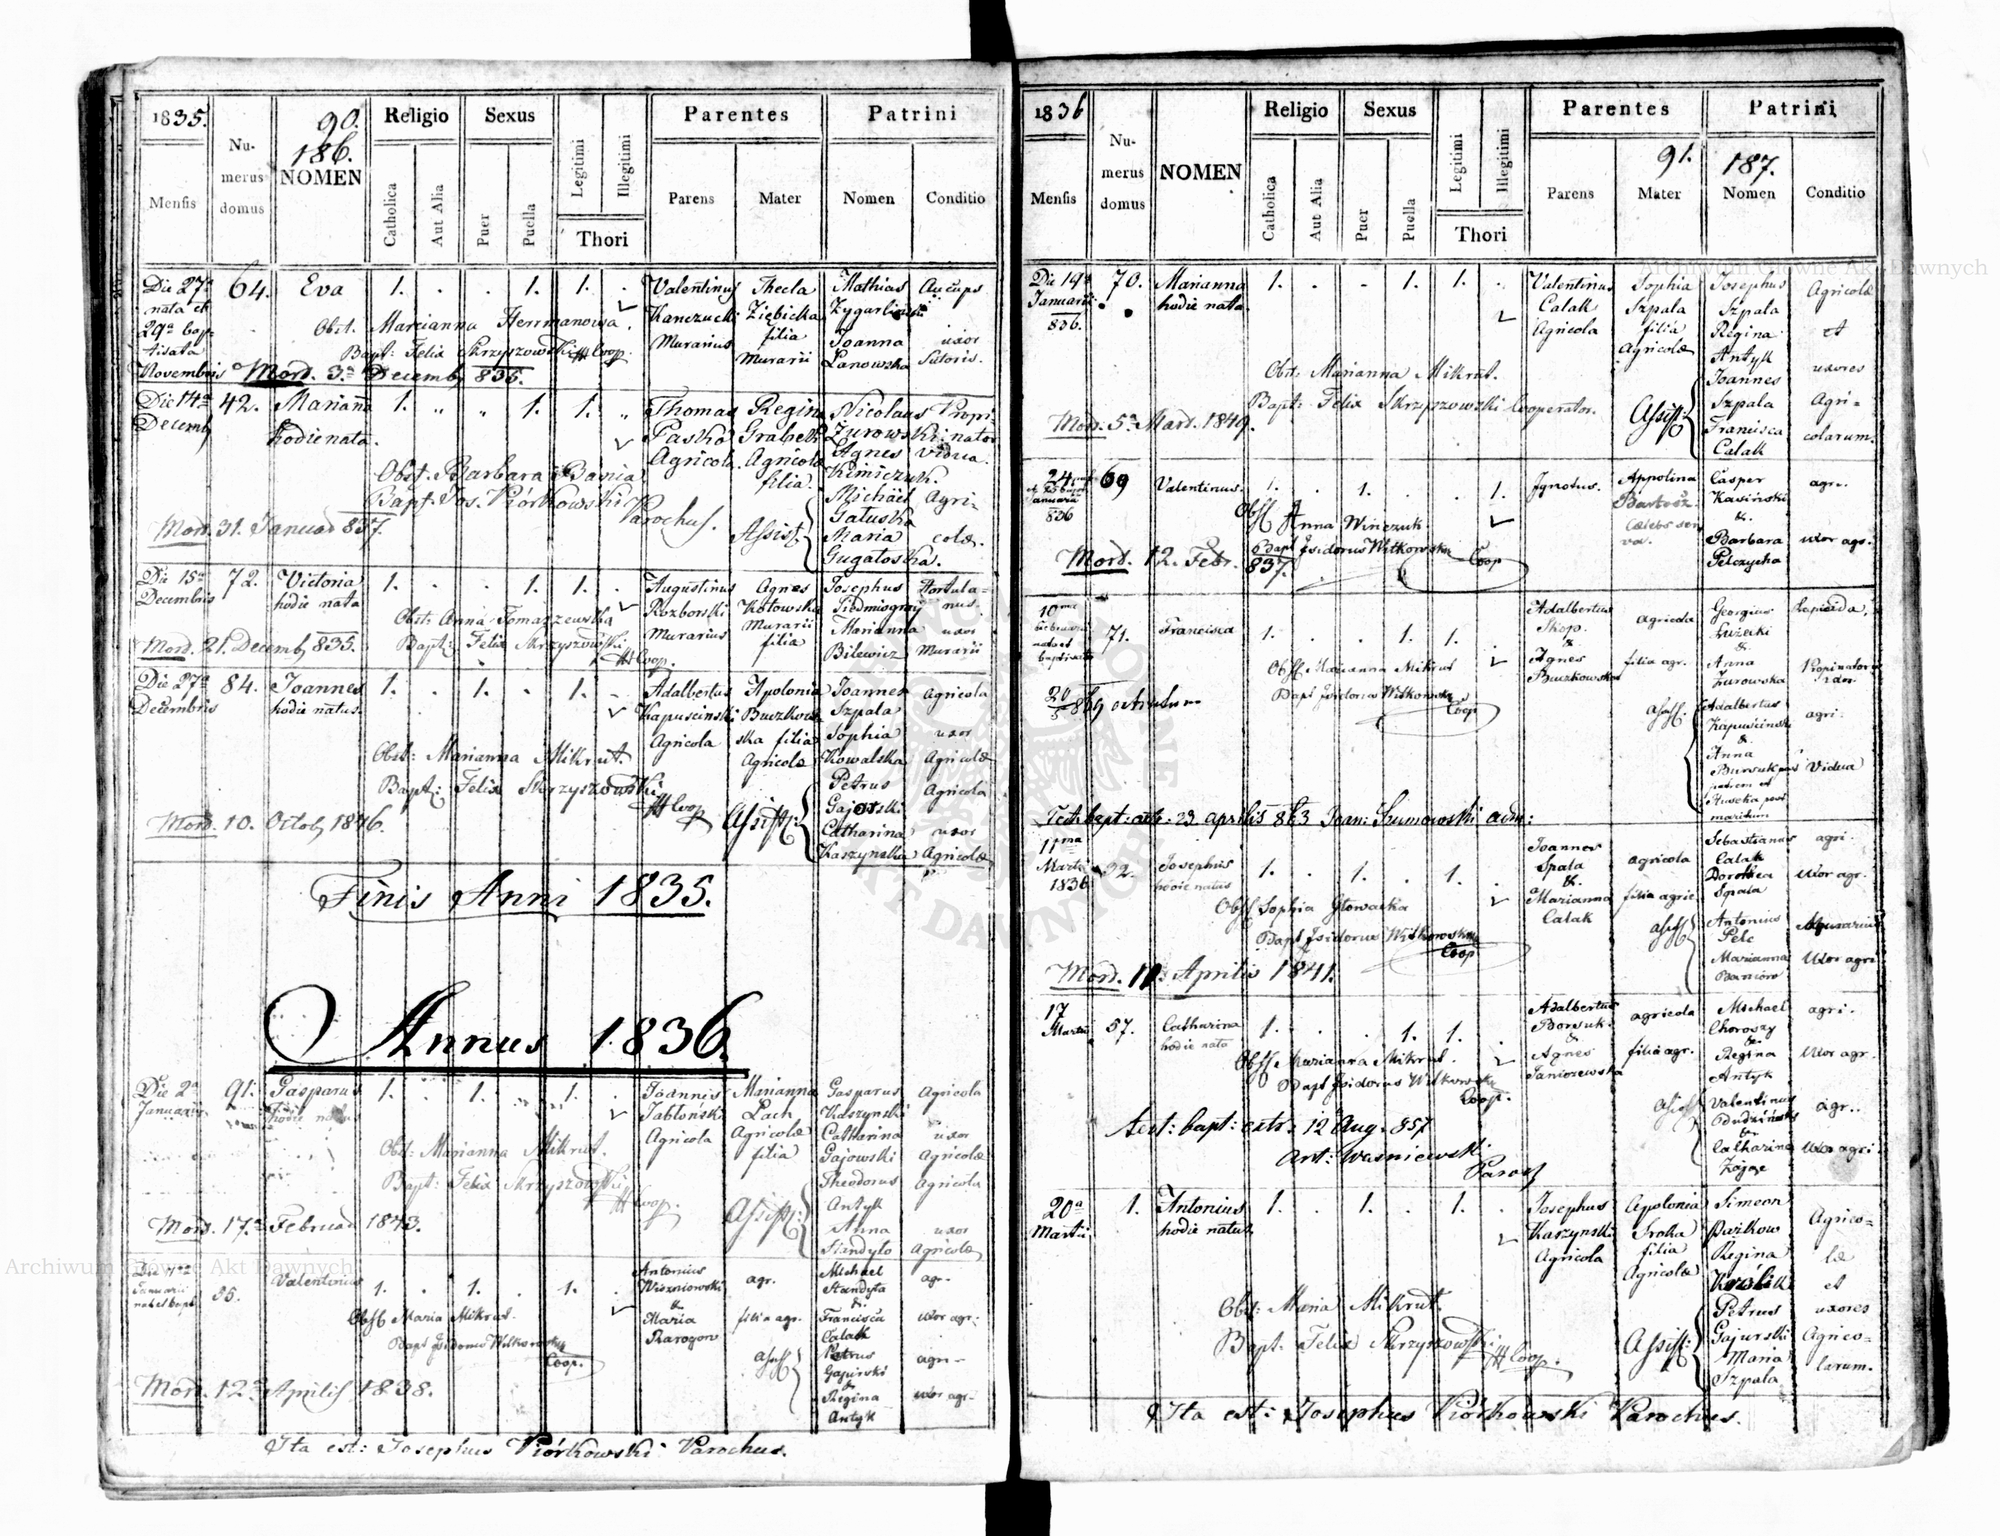 1835.
Numerus domus
90.
186.
NOMEN
Religio
Sexus
Legitimi
Illegitimi
Parentes
Patrini
Mensis
Catholica
Aut Alia
Puer
Puella
Thori
Parens
Mater
Nomen
Conditio
Die 27ª 64. Eva 1. . . 1. 1. . Valentinus Thecla Mathias Auceps
nata et Kanczucki Ziębicka
29ª bap- Obst. Marianna Herrmanowa. Murarius filia Joanna uxor
tisata Bapt: Felix Skrzyszowski Coop. Murarii Łanowska Sutoris.
Novembris Mort. 3ª Decemb 835.
Die 14ª 42. Marianna 1. " " 1. 1. " Thomas Regina Nicolaus Propi-
Decemb hodie nata. Paśka Żurowski nator
Agricola. Agricolæ Agnes vidua.
Obst. Barbara Bania filia. Kimiczuk.
Bapt. Jos. Piórkowski Parochus. Michael Agri-
Mort. 31. Januar 837. Assist. Gatuszka
Maria colæ.
Gugatoska.
Die 15ª 72. Victoria 1. . . 1. 1. . Augustinus Agnes Josephus Hortula-
Decembris hodie nata Rozborski Kotowska Siedmiogray nus.
Obst. Anna Tomaszewska Murarius Murarii Marianna uxor
Mort. 21. Decemb 835. Bapt: Felix Skrzyszowski Coop. filia Bilewicz Murarii
Die 27ª 84. Joannes 1. . 1. . 1. . Adalbertus Apolonia Joannes Agricola
Decembris hodie natus. Kapuscinski Buczkow- Szpala
Agricola ska filia Sophia uxor
Obst: Marianna Mikrut. Agricolæ Kowalska Agricolæ
Bapt: Felix Skrzyszowski Coop Petrus Agricola
Mort. 10. Octob 1846. Assist: Gajorski
Catharina uxor
Kaszynska Agricolæ
Finis Anni 1835.
Annus 1836.
Die 2ª 91. Gasparus 1. . 1. . 1. . Joannes Marianna Gasparus Agricola
Januarii hodie natus Jabłoński Lach Kaszynski
Agricola Agricolæ Catharina uxor
Obst: Marianna Mikrut. filia Gajowski Agricolæ
Bapt: Felix Skrzyszowski Coop. Theodorus Agricola
Assist: Antyk
Mort. 17ª Februar 1843. Anna uxor
Standyło Agricolæ
Januarii 55. Valentinus 1. . 1. . 1. . Antonius agr. Michael agr-
nat et bapt Wiszniowski Standyła
Obst Maria Mikrut. & Maria filia agr. & Francisca uxor agr:
Bapt Isidorus Witkowski Coop. Rarogow Calak
Assist Petrus agri-
Gajurski
Mort. 12ª Aprilis 1838. & Regina uxor agr-
Antyk
Ita est: Josephus Piórkowski Parochus.
1836
Numerus domus
NOMEN
Religio
Sexus
Legitimi
Illegitimi
Parentes
Patrini
91.
187.
Mensis
Catholica
Aut Alia
Puer
Puella
Thori
Parens
Mater
Nomen
Conditio
Die 19ª 70. Marianna 1. . . 1. 1. . Valentinus Sophia Josephus Agricolæ
Januarii hodie nata. Calak Szpala Szpala
836. Agricola filia Regina et
Agricolæ Antyk
Obst: Marianna Mikrut. Joannes uxores
Bapt: Felix Skrzyszowski Cooperator. Assist: Szpala Agri-
Mort. 5ª Mart. 1849. Francisca colarum.
Calak
24 69 Valentinus. 1. . 1. . . 1. Ignotus. Appolina Casper agr.
Januarii Bartosz Kasiński
836 Obst Anna Winczuk. &
Mort. 12. Febr. 837. Bapt Isidorus Witkowski Coop Barbara uxor agr.
Pelczycha
10 71. Francisca 1. . . 1. 1. . Adalbertus agricola Georgius Lapicida.
Skop. Łużecki
& Agnes filia agr. & Anna Propinatoris
Obst Marianna Mikrut Buczkowska Żurowska
Bapt Isidorus Witkowski Coop
20/5 869 Assist: Adalbertus agri.
Kapuściński
& Anna
Vidua
Test: bapt: extr: 29 aprilis 863 Joan: Szumowski adm:
11ma 92. Josephus 1. . 1. . 1. . Joannes agricola Sebastianus agri.
Martii hodie natus Spala Calak
1836 & Dorothea uxor agr.
Obst Sophia Głowacka Marianna filia agric Spala
Bapt Isidorus Witkowski Coop Calak Assist Antonius Murarius
Pelc
Mort. 11. Aprilis 1841. Marianna uxor agri
17 57. Catharina 1. . . 1. 1. . Adalbertus agricola Michael agri.
Martii hodie nata Borsuk. Choroszy
Obst Marianna Mikrut. & Agnes filia agr. & Regina uxor agr.
Bapt Isidorus Witkowski Coop. Janiszewska Antyk
Assist Valentinus agr..
Test: bapt: extr: 12 Aug. 857 Dudziński
Ant: Wasniewski Paroch & Catharina uxor agri.
Zając
20ª 1. Antonius 1. . 1. . 1. . Josephus Apolonia Simeon Agrico-
Martii hodie natus Kaszynski Sroka Pażkow
Agricola filia Regina læ
Agricolæ Królik et
Obst: Maria Mikrut. Petrus uxores
Bapt. Felix Skrzyszowski Coop. Assist: Gajurski Agrico-
Maria larum.
Szpala
Ita est: Josephus Piórkowski Parochus.
Archiwum Główne Akt Dawnych
Archiwum Główne Akt Dawnych